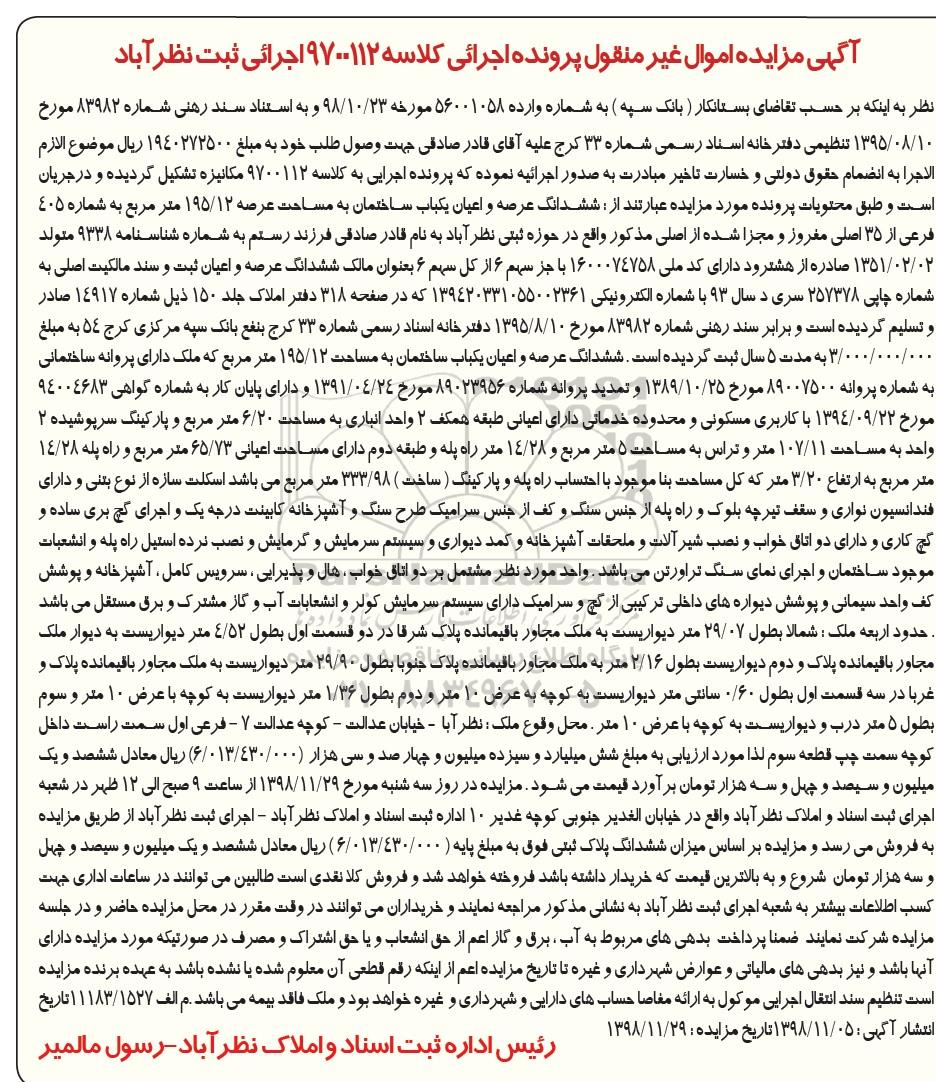 آگهی مزایده اموال غیر منقول پرونده اجرائی کلاسه ۹۷۰۰۱۱۲ اجرائی ثبت نظر آباد
نظر به اینکه بر حسب تقاضای بستانکار ( بانک سپه ) به شماره وارده ۵۶۰۰۱۰۵۸ مورخه ۹۸/۱۰/۲۳ و به استناد سند رهنی شماره ۸۳۹۸۲ مورخ
۱۳۹۵/۰۸/۱۰ تنظیمی دفترخانه اسناد رسمی شماره ۳۳ کرج علیه آقای قادر صادقی جهت وصول طلب خود به مبلغ ۱۹۴۰۲۷۲۵۰۰ ریال موضوع الازم
الاجرا به انضمام حقوق دولتی و خسارت تاخیر مبادرت به صدور اجرائیه نموده که پرونده اجرایی به کلاسه ۹۷۰۰۱۱۲ مکانیزه تشکیل گردیده و درجریان
است و طبق محتویات پرونده مورد مزایده عبارتند از : ششدانگ عرصه و اعیان یکباب ساختمان به مساحت عرصه ۱۹۵/۱۲ متر مربع به شماره ۴۰۵
فرعی از ۳۵ اصلی مغروز و مجزا شده از اصلی مذکور واقع در حوزه ثبتی نظر آباد به نام قادر صادقی فرزند رستم به شماره شناسنامه ۹۳۳۸ متولد
۱۳۵۱/۰۲/۰۲ صادره از هشترود دارای کد ملی ۱۶۰۰۰۷۴۷۵۸ با جز سهم ۶ از کل سهم ۶ بعنوان مالک ششدانگ عرصه و اعیان ثبت و سند مالکیت اصلی به
شماره چاپی ۲۵۷۳۷۸ سری د سال ۹۳ با شماره الکترونیکی ۱۳۹۴۲۰۳۳۱۰۵۵۰۰۲۳۶۱ که در صفحه ۳۱۸ دفتر املاک جلد ۱۵۰ ذیل شماره ۱۴۹۱۷ صادر
و تسلیم گردیده است و برابر سند رهنی شماره ۸۳۹۸۲ مورخ ۱۳۹۵/۸/۱۰ دفترخانه اسناد رسمی شماره ۳۳ کرج بنفع بانک سپه مرکزی کرج ۵۴ به مبلغ
۳/۰۰۰/۰۰۰/۰۰۰ به مدت ۵ سال ثبت گردیده است . ششدانگ عرصه و اعیان یکباب ساختمان به مساحت ۱۹۵/۱۲ متر مربع که ملک دارای پروانه ساختمانی
به شماره پروانه ۸۹۰۰۷۵۰۰ مورخ ۱۳۸۹/۱۰/۲۵ و تمدید پروانه شماره ۸۹۰۲۳۹۵۶ مورخ ۱۳۹۱/۰۴/۲۴ و دارای پایان کار به شماره گواهی ۹۴۰۰۴۶۸۳
مورخ ۱۳۹۴/۰۹/۲۲ با کاربری مسکونی و محدوده خدماتی دارای اعیانی طبقه همکف ۲ واحد انباری به مساحت ۶/۲۰ متر مربع و پارکینگ سرپوشیده ۲
واحد به مساحت ۱۰۷/۱۱ متر و تراس به مساحت ۵ متر مربع و ۱۴/۲۸ متر راه پله و طبقه دوم دارای مساحت اعیانی ۶۵/۷۳ متر مربع و راه پله ۱۴/۲۸
متر مربع به ارتفاع ۳/۲۰ متر که کل مساحت بنا موجود با احتساب راه پله و پارکینگ ( ساخت ) ۳۳۳/۹۸ متر مربع می باشد اسکلت سازه از نوع بتنی و دارای
فندانسیون نواری و سقف تیرچه بلوک و راه پله از جنس سنگ و کف از جنس سرامیک طرح سنگ و آشپزخانه کابینت درجه یک و اجرای گچ بری ساده و
گچ کاری و دارای دو اتاق خواب و نصب شیر آلات و ملحقات آشپزخانه و کمد دیواری و سیستم سرمایش و گرمایش و نصب نرده استیل راه پله و انشعبات
موجود ساختمان و اجرای نمای سنگ تراورتن می باشد . واحد مورد نظر مشتمل بر دو اتاق خواب ، هال و پذیرایی ، سرویس کامل ، آشپزخانه و پوشش
کف واحد سیمانی و پوشش دیواره های داخلی ترکیبی از گچ و سرامیک دارای سیستم سرمایش کولر و انشعابات آب و گاز مشترک و برق مستقل می باشد
. حدود اربعه ملک : شمالا بطول ۲۹/۰۷ متر دیواریست به ملک مجاور باقیمانده پلاک شرقا در دو قسمت اول بطول ۴/۵۲ متر دیواریست به دیوار ملک
مجاور باقیمانده پلاک و دوم دیواریست بطول ۲/۱۶ متر به ملک مجاور باقیمانده پلاک جنوبا بطول ۲۹/۹۰ متر دیواریست به ملک مجاور باقیمانده پلاک و
غربا در سه قسمت اول بطول ۰/۶۰ سانتی متر دیواریست به کوچه به عرض ۱۰ متر و دوم بطول ۱/۳۶ متر دیواریست به کوچه با عرض ۱۰ متر و سوم
بطول ۵ متر درب و دیواریست به کوچه با عرض ۱۰ متر . محل وقوع ملک : نظر آبا - خیابان عدالت - کوچه عدالت ۷ - فرعی اول سمت راست داخل
کوچه سمت چپ قطعه سوم لذا مورد ارزیابی به مبلغ شش میلیارد و سیزده میلیون و چهار صد و سی هزار (۶/۰۱۳/۴۳۰/۰۰۰) ریال معادل ششصد و یک
میلیون و سیصد و چهل و سه هزار تومان بر آورد قیمت می شود . مزایده در روز سه شنبه مورخ ۱۳۹۸/۱۱/۲۹ از ساعت ۹ صبح الی ۱۲ ظهر در شعبه
اجرای ثبت اسناد و املاک نظر آباد واقع در خیابان الغدیر جنوبی کوچه غدیر ۱۰ اداره ثبت اسناد و املاک نظر آباد - اجرای ثبت نظر آباد از طریق مزایده
به فروش می رسد و مزایده بر اساس میزان ششدانگ پلاک ثبتی فوق به مبلغ پایه ( ۶/۰۱۳/۴۳۰/۰۰۰ ) ریال معادل ششصد و یک میلیون و سیصد و چهل
و سه هزار تومان شروع و به بالاترین قیمت که خریدار داشته باشد فروخته خواهد شد و فروش کلا نقدی است طالبین می توانند در ساعات اداری جهت
کسب اطلاعات بیشتر به شعبه اجرای ثبت نظر آباد به نشانی مذکور مراجعه نمایند و خریداران می توانند در وقت مقرر در محل مزایده حاضر و در جلسه
مزایده شرکت نمایند ضمنا پرداخت بدهی های مربوط به آب ، برق و گاز اعم از حق انشعاب و یا حق اشتراک و مصرف در صورتیکه مورد مزایده دارای
آنها باشد و نیز بدهی های مالیاتی و عوارض شهرداری و غیره تا تاریخ مزایده اعم از اینکه رقم قطعی آن معلوم شده یا نشده باشد به عهده برنده مزایده
است تنظیم سند انتقال اجرایی موکول به ارائه مفاصا حساب های دارایی و شهرداری و غیره خواهد بود و ملک فاقد بیمه می باشد .م الف ۱۱۱۸۳/۱۵۲۷تاریخ
انتشار آگهی : ۱۳۹۸/۱۱/۰۵تاریخ مزایده : ۱۳۹۸/۱۱/۲۹
رئیس اداره ثبت اسناد و املاک نظر آباد-رسول مالمیر